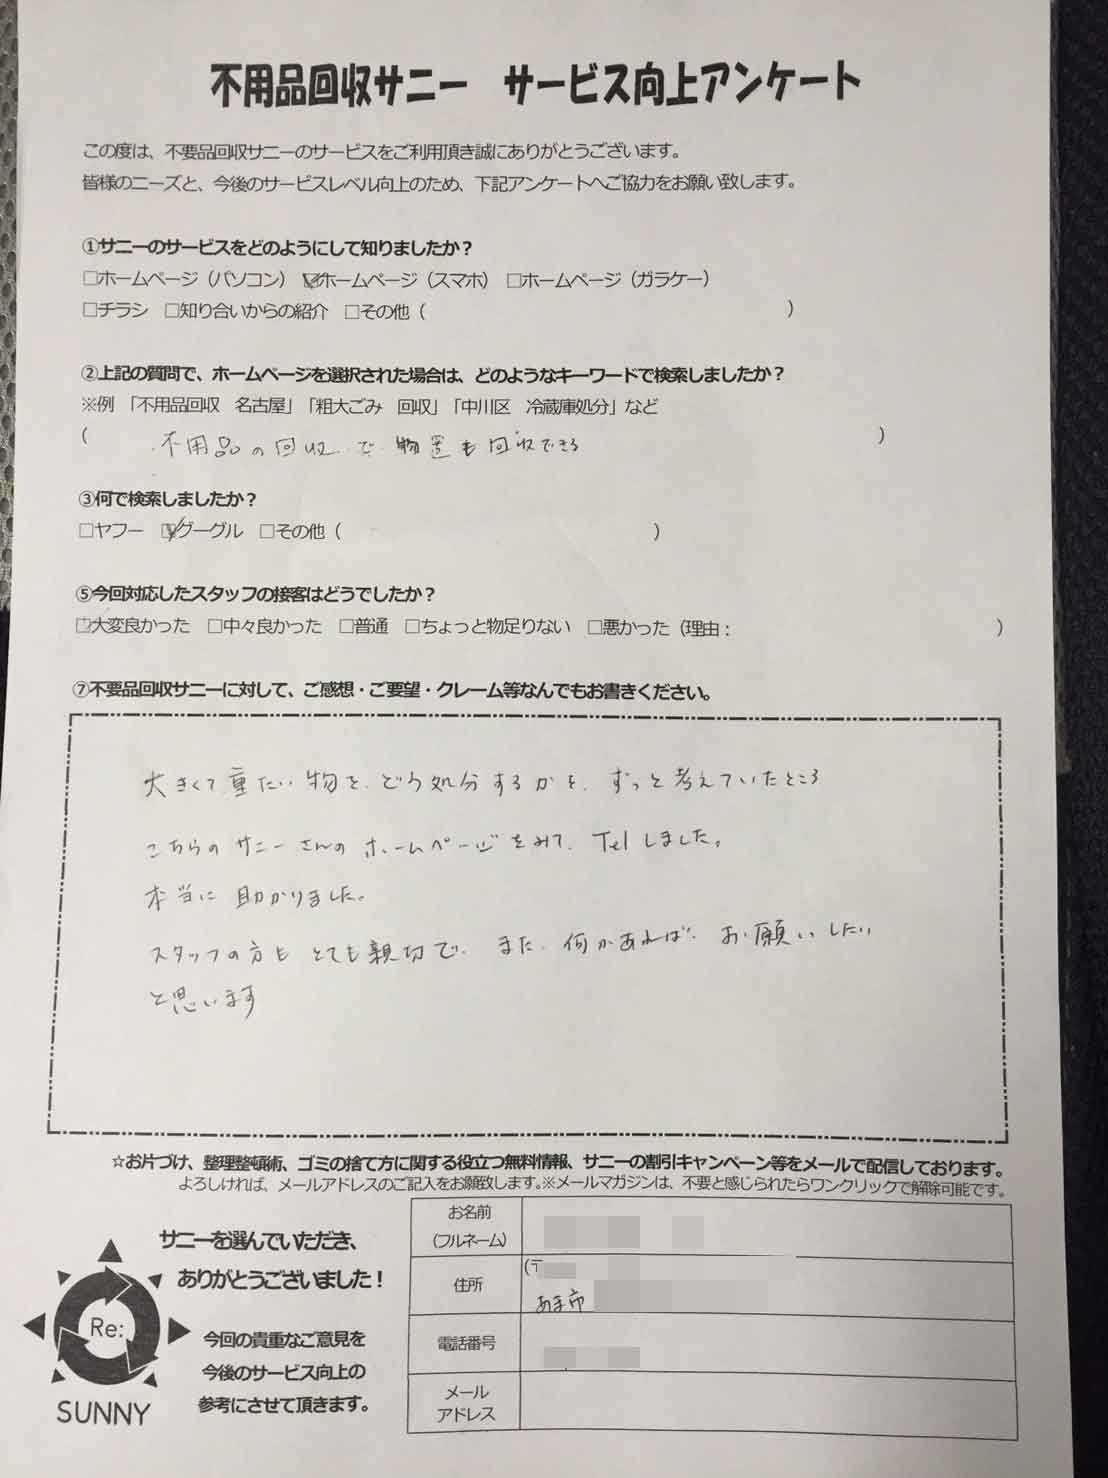 不用品回収サニー　サービス向上アンケート
この度は、不要品回収サニーのサービスをご利用頂き誠にありがとうございます。
皆様のニーズと、今後のサービスレベル向上のため、下記アンケートへご協力をお願い致します。
①サニーのサービスをどのようにして知りましたか？
□ホームページ（パソコン）　☑ホームページ（スマホ）　□ホームページ（ガラケー）
□チラシ　□知り合いからの紹介　□その他（　　　　　　　　　　　　　　　　　　　　　　）
②上記の質問で、ホームページを選択された場合は、どのようなキーワードで検索しましたか？
※例　「不用品回収　名古屋」「粗大ごみ　回収」「中川区　冷蔵庫処分」など
（　　　不用品の回収で物置も回収できる　　　　　　　　　　　　　　　　　　）
③何で検索しましたか？
□ヤフー　☑グーグル　□その他（　　　　　　　　　　　　　　　　　　　）
⑤今回対応したスタッフの接客はどうでしたか？
☑大変良かった　□中々良かった　□普通　□ちょっと物足りない　□悪かった（理由：　　　　　　　　　　　　　　　）
⑦不要品回収サニーに対して、ご感想・ご要望・クレーム等なんでもお書きください。
大きくて重たい物を、どう処分するかを、ずっと考えていたところ
こちらのサニーさんのホームページをみて、Telしました。
本当に助かりました。
スタッフの方もとても親切で、また、何かあれば、お願いしたい
と思います
☆お片づけ、整理整頓術、ゴミの捨て方に関する役立つ無料情報、サニーの割引キャンペーン等をメールで配信しております。
よろしければ、メールアドレスのご記入をお願致します。※メールマガジンは、不要と感じられたらワンクリックで解除可能です。
サニーを選んでいただき、
ありがとうございました！
今回の貴重なご意見を
今後のサービス向上の
参考にさせて頂きます。
Re:
SUNNY
お名前
（フルネーム）
住所
（〒
あま市
電話番号
メール
アドレス